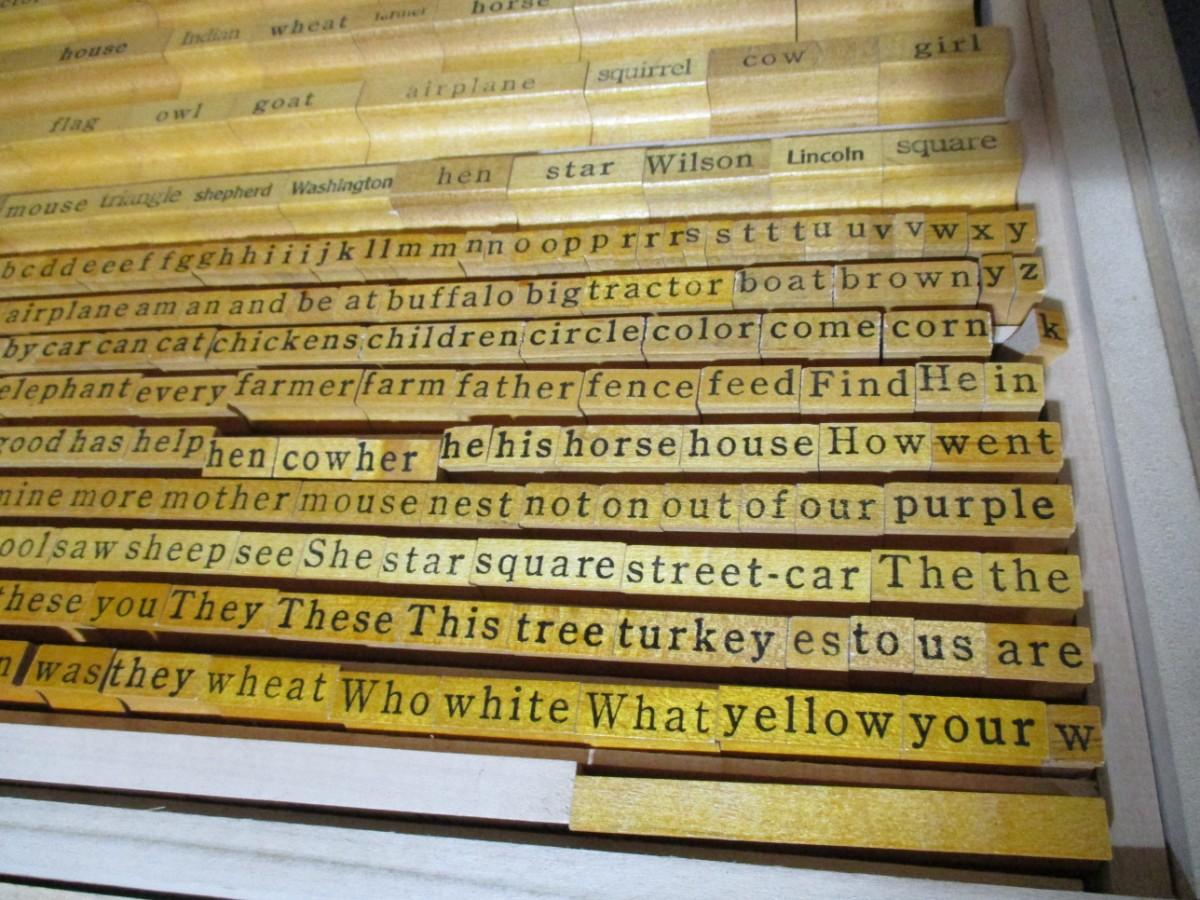 house Indian wheat farmer horse
flag owl goat airplane squirrel cow girl
mouse triangle shepherd Washington hen star Wilson Lincoln square
b c d d e e e f f g g h h i i i j k l l m m n n o o p p r r r s s t t t u u v v w x y
airplane am an and be at buffalo big tractor boat brown y z
by car can cat chickens children circle color come corn k
elephant every farmer farm father fence feed Find He in
good has help hen cow her he his horse house How went
nine more mother mouse nest not on out of our purple
saw sheep see She star square street-car The the
these you They These This tree turkey es to us are
was they wheat Who white What yellow your w